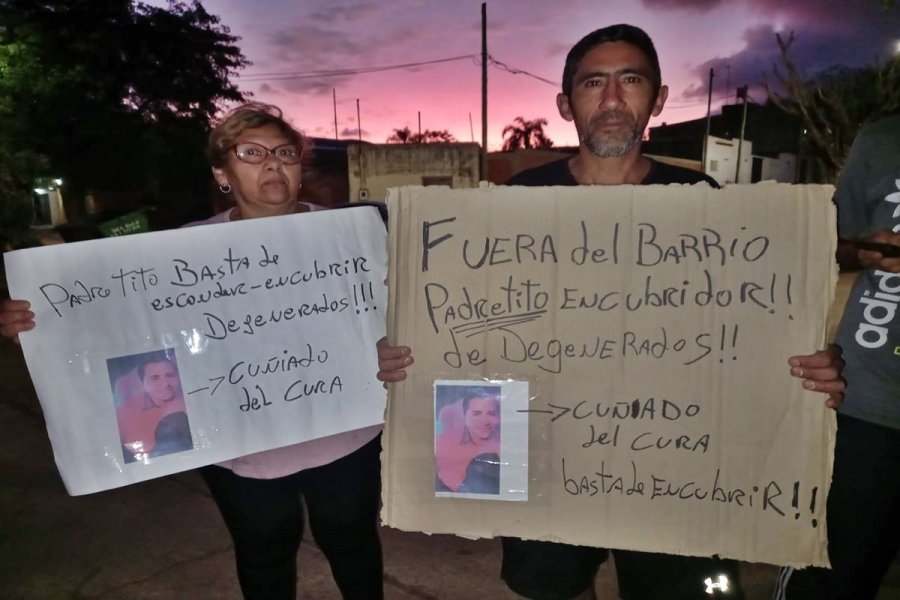 Padre Tito Basta de
esconder-encubrir
Degenerados!!!
Cuñiado
del Cura
Fuera del Barrio
Padre tito encubridor!!
de Degenerados!!
Cuñiado
del Cura
basta de Encubrir!!
adidas